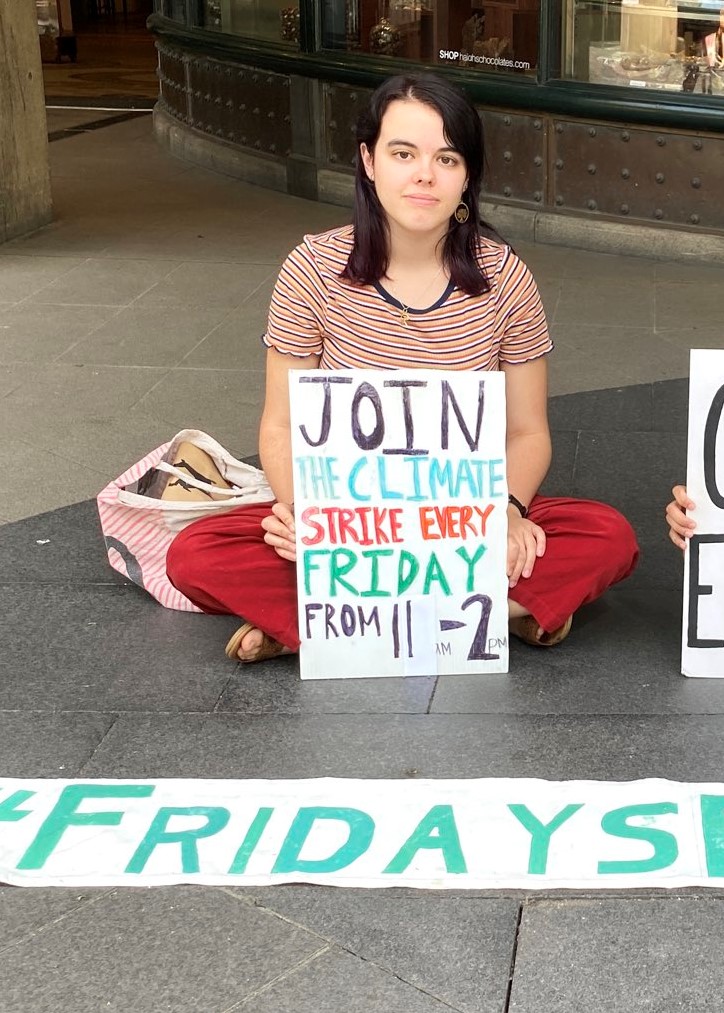 SHOP haighschocolates.com
JOIN
THE CLIMATE
STRIKE EVERY
FRIDAY
FROM 11AM-2PM
#FRIDAYS